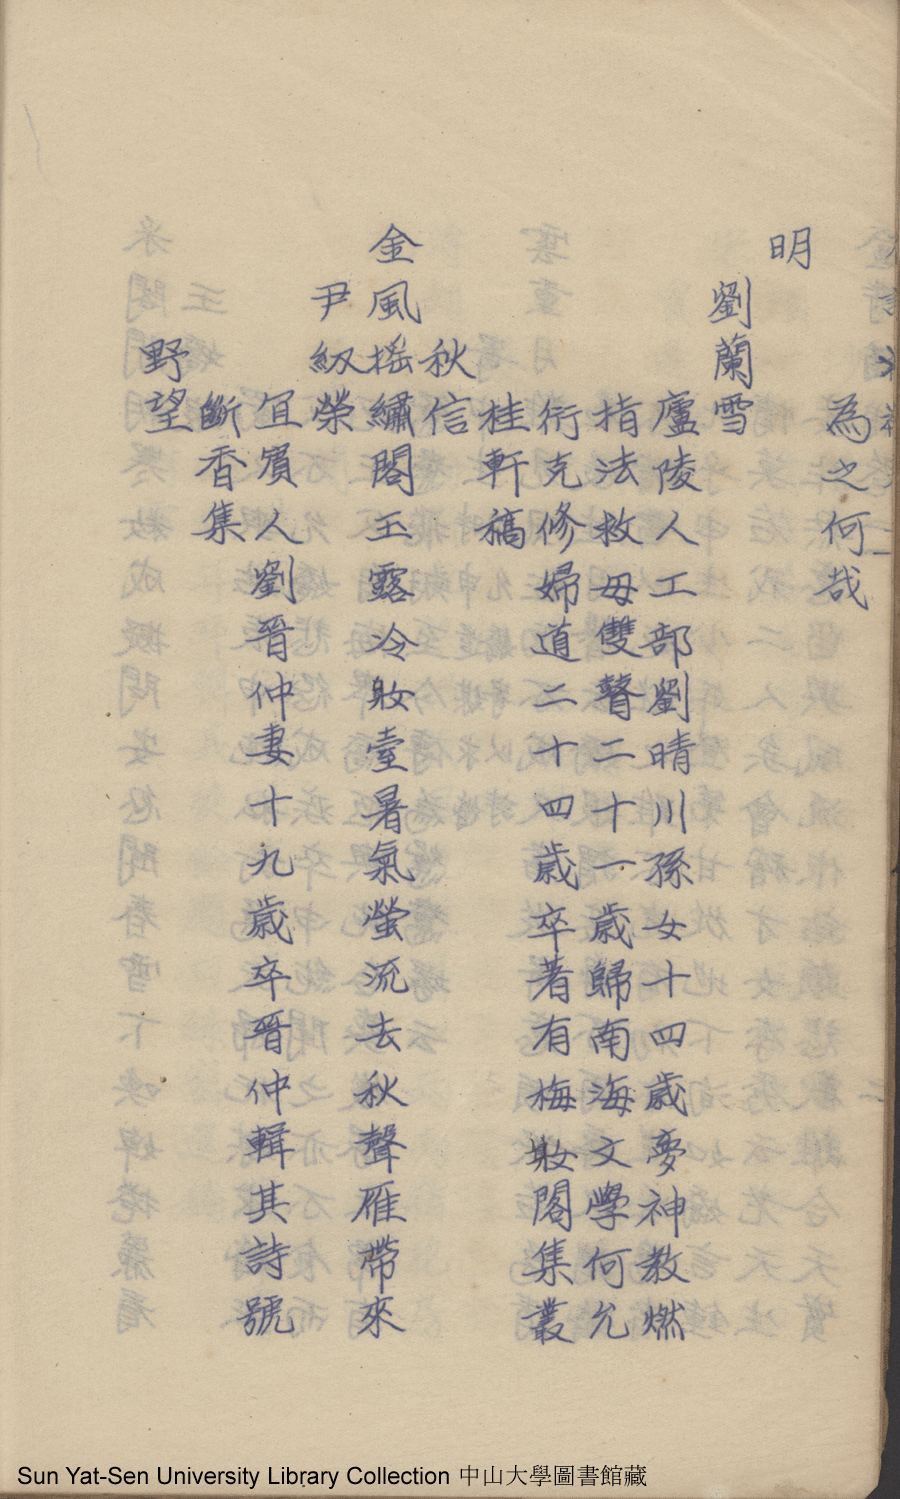 為之何哉
明
劉蘭雪
廬陵人工部劉晴川孫女十四歲夢神教燃
指法救母雙瞽二十一歲歸南海文學何允
衍克修婦道二十四歲卒著有梅妝閣集叢
桂軒稿
秋信
金風摇繡閣玉露冷妝臺暑氣螢流去秋聲雁帶來
尹紉榮
宜賓人劉晉仲妻十九歲卒晉仲輯其詩號
斷香集
野望
Sun Yat-Sen University Library Collection 中山大學圖書館藏